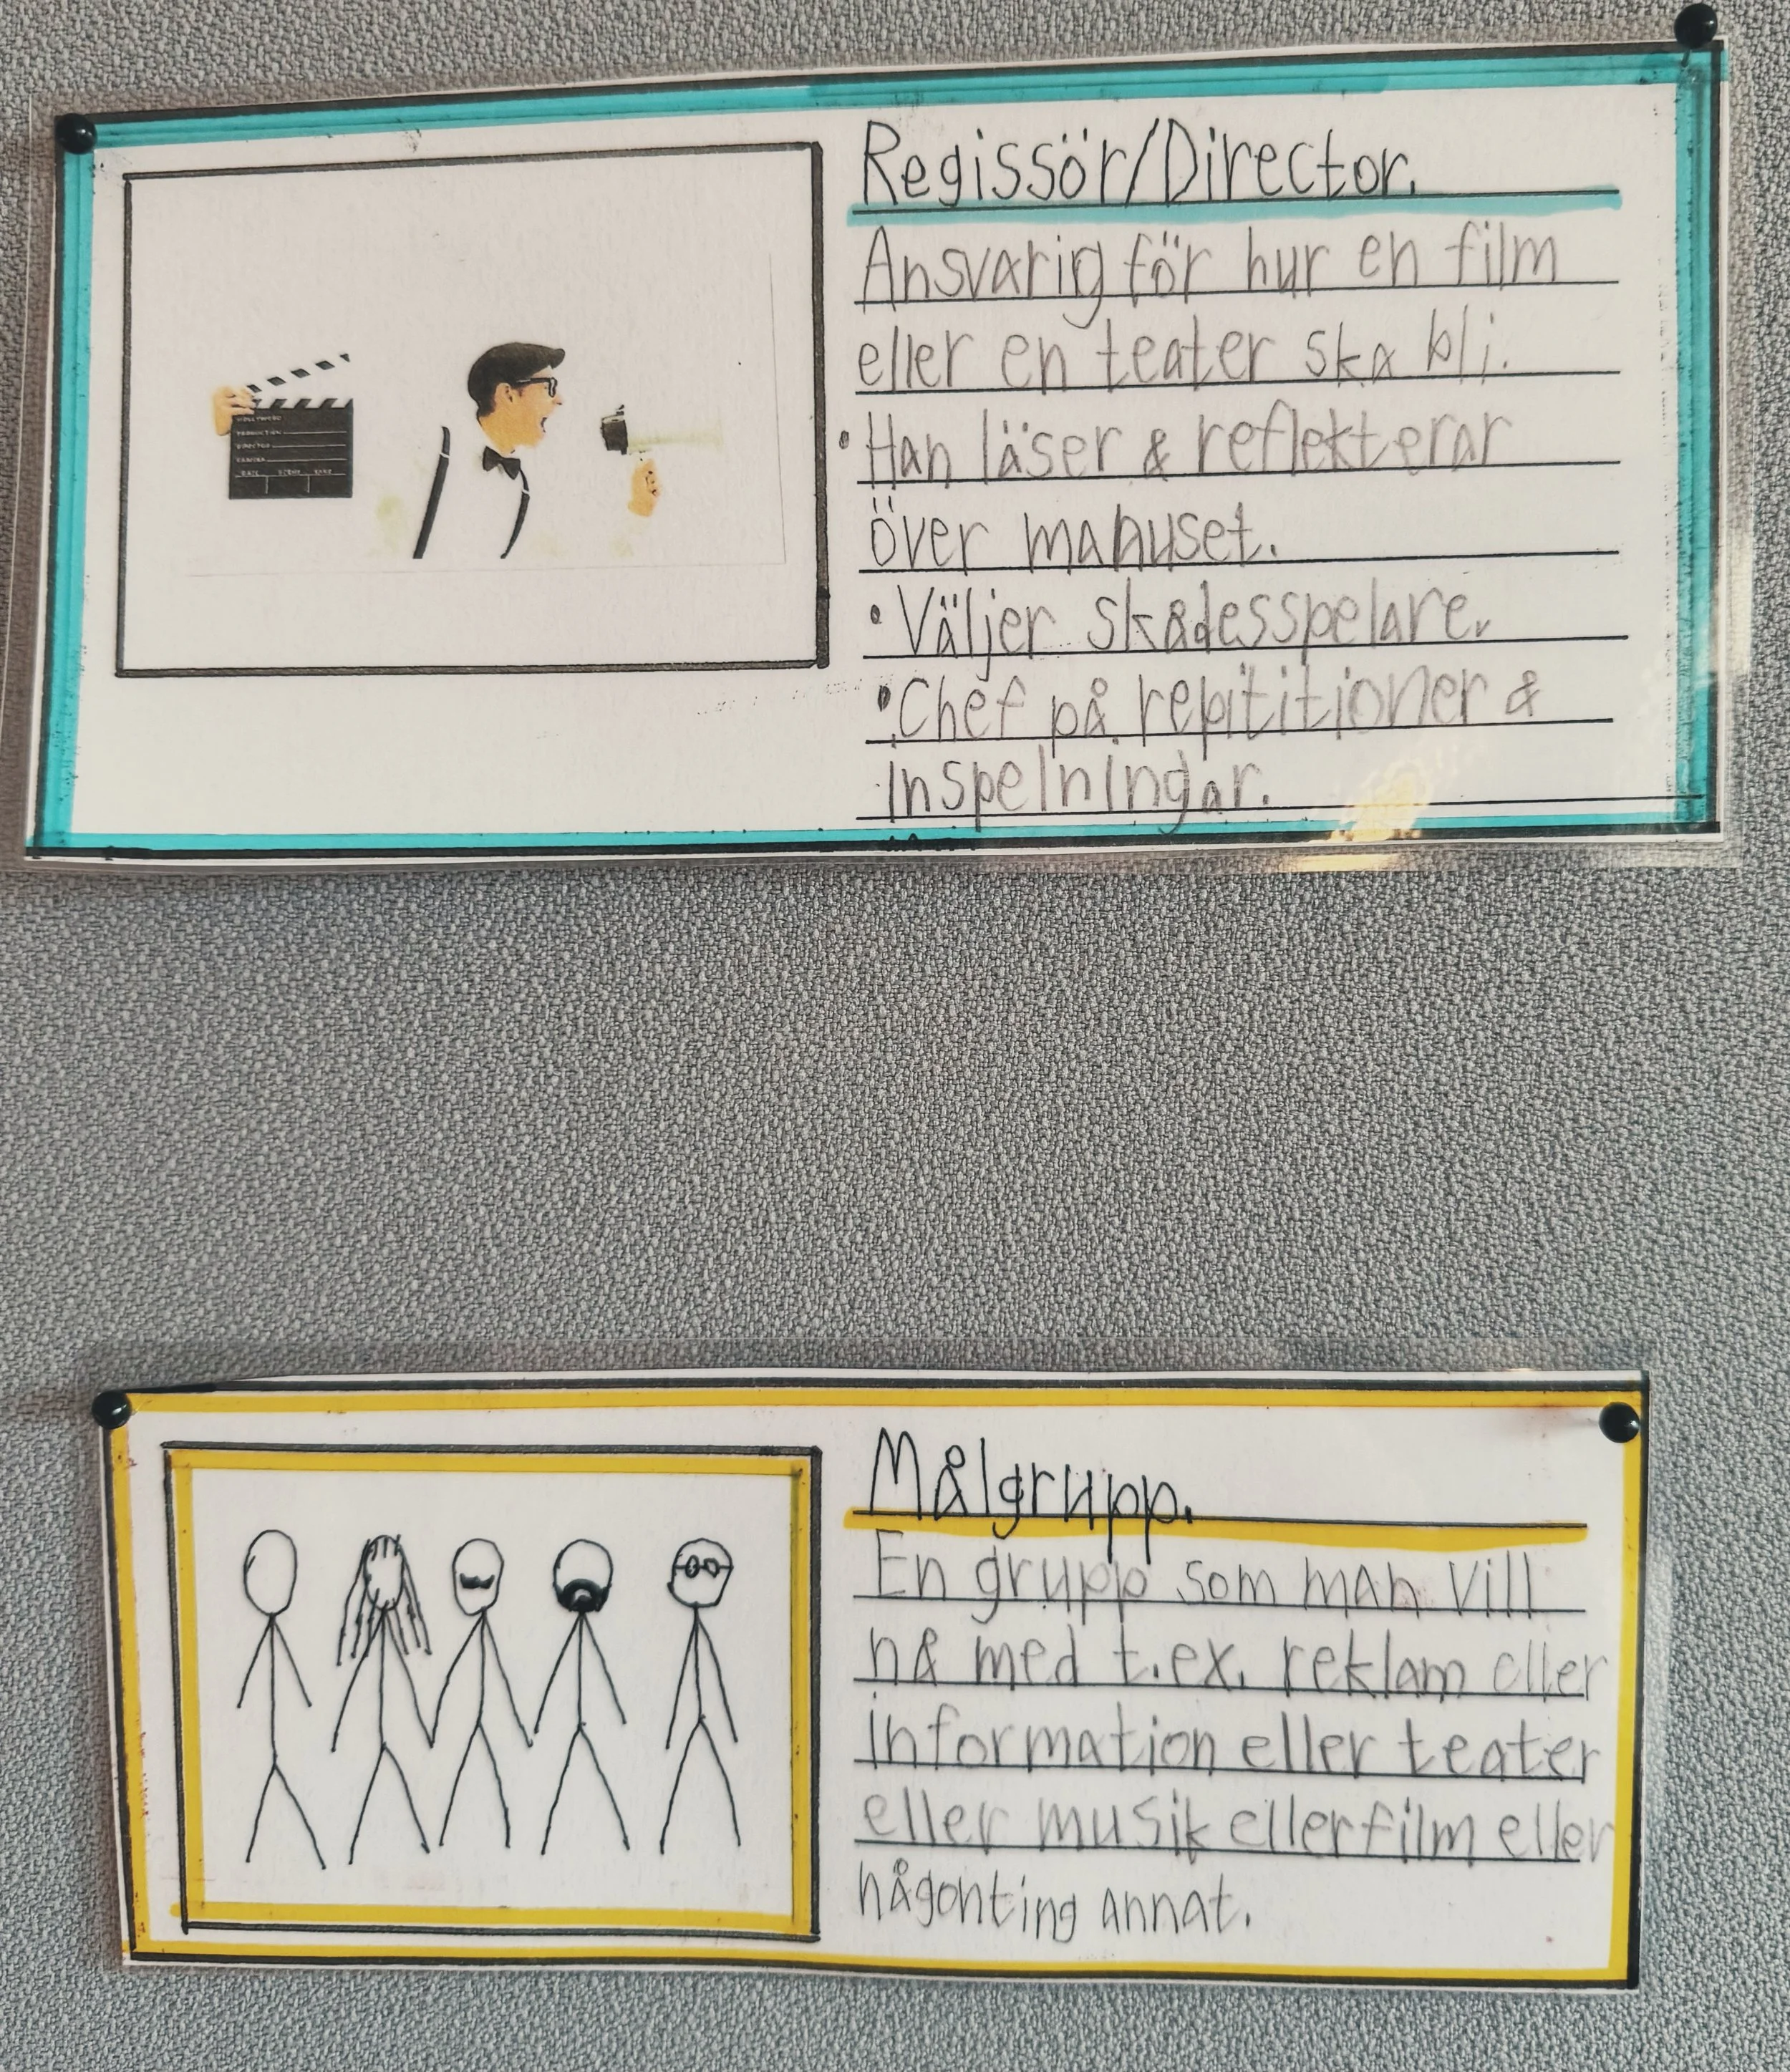 Regissör/Director.
Ansvarig för hur en film
eller en teater ska bli.
•Han läser & reflekterar
över manuset.
•Väljer skådesspelare.
•Chef på repititioner &
inspelningar.
HOLLYWOOD
PRODUCTION
DIRECTOR
CAMERA
DATE SCENE TAKE
Målgrupp.
En grupp som man vill
nå med t.ex. reklam eller
information eller teater
eller musik eller film eller
någonting annat.